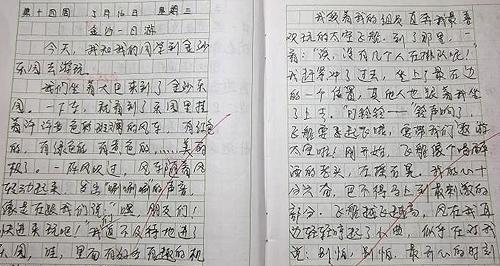 第十四周 5月16日 星期三
金沙一日游
今天,我和我的同学到金沙
乐园去游玩。
我们坐着大巴来到了金沙乐
园。一下车,就看到了乐园里挂
着许许多多色彩斑斓的风车,有红色
的,有绿色的,有黄色的……美丽
极了。一阵风吹过,风车随着风
转动起来,发出“唰唰”的声音,
像是在跟我们说“嘿,朋友们!
快进来玩吧!我迫不及待地进了
乐园,哇,里面有好多有趣的机
我跟着我的组员直奔我最喜
欢玩的太空飞船。到了那里,一
看:“没,没有几个人在排队呢!”
我赶紧冲了过去,坐上了最右边
的一个位置,其他人也跟着我坐
了上去。“叮铃铃——”铃声响了,
飞船要起飞啦,要带我们遨游
太空啦!刚开始,飞船像个喝醉
酒的老头,左摇右晃。我的心十
分兴奋,巴不得马上到最刺激的
部分。飞船越飞越高,风在我耳
边轻轻哼起了小曲,似乎在对我
说:别怕,别怕,最开心的时刻